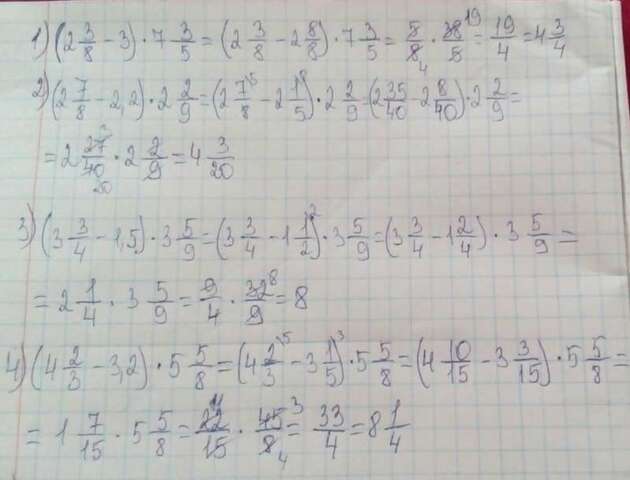 1) (2 3/8 - 3) · 7 3/5 = (2 3/8 - 2 8/8) · 7 3/5 = 5/8 4 · 38/5 19 = 19/4 = 4 3/4
2) (2 7/8 - 2,2) · 2 2/9 = (2 7/8 5 - 2 1/5 8) · 2 2/9 = (2 35/40 - 2 8/40) · 2 2/9 =
= 2 27/40 20 · 2 2/9 = 4 3/20
3) (3 3/4 - 1,5) · 3 5/9 = (3 3/4 - 1 1/2 2) · 3 5/9 = (3 3/4 - 1 2/4) · 3 5/9 =
= 2 1/4 · 3 5/9 = 9/4 · 32/9 8 = 8
4) (4 2/3 - 3,2) · 5 5/8 = (4 2/3 5 - 3 1/5 3) · 5 5/8 = (4 10/15 - 3 3/15) · 5 5/8 =
= 1 7/15 · 5 5/8 = 22/15 · 45/8 4 3 = 33/4 = 8 1/4